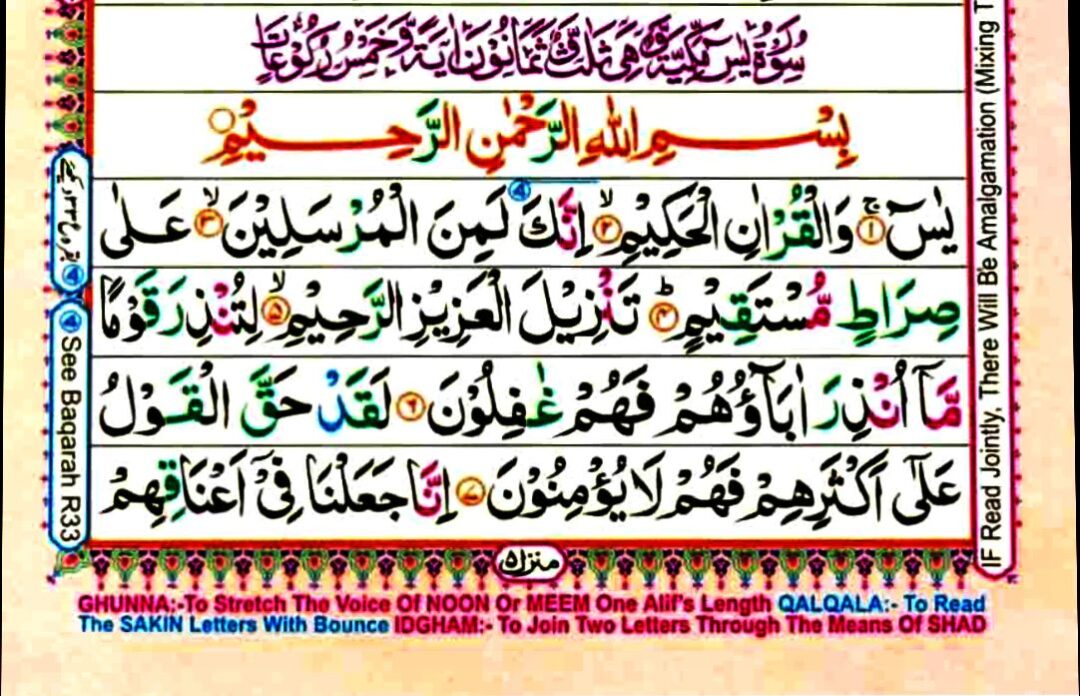 سُوْرَةُ يٰسٓ مَكِّيَّةٌ وَّهِيَ ثَلٰثٌ وَّثَمَانُوْنَ اٰيَةً وَّخَمْسُ رُكُوْعَاتٍ
بِسْمِ اللهِ الرَّحْمٰنِ الرَّحِيْمِ
يٰسٓ ۚ ۝١ وَالْقُرْاٰنِ الْحَكِيْمِ ۙ ۝٢ اِنَّكَ لَمِنَ الْمُرْسَلِيْنَ ۙ ۝٣ عَلٰى
صِرَاطٍ مُّسْتَقِيْمٍ ؕ ۝٤ تَنْزِيْلَ الْعَزِيْزِ الرَّحِيْمِ ۙ ۝٥ لِتُنْذِرَ قَوْمًا
مَّاۤ اُنْذِرَ اٰبَآؤُهُمْ فَهُمْ غٰفِلُوْنَ ۝٦ لَقَدْ حَقَّ الْقَوْلُ
عَلٰۤى اَكْثَرِهِمْ فَهُمْ لَا يُؤْمِنُوْنَ ۝٧ اِنَّا جَعَلْنَا فِيْۤ اَعْنَاقِهِمْ
منزل ٥
GHUNNA:-To Stretch The Voice Of NOON Or MEEM One Alif's Length QALQALA:- To Read
The SAKIN Letters With Bounce IDGHAM:- To Join Two Letters Through The Means Of SHAD
④ See Baqarah R33
IF Read Jointly, There Will Be Amalgamation (Mixing T